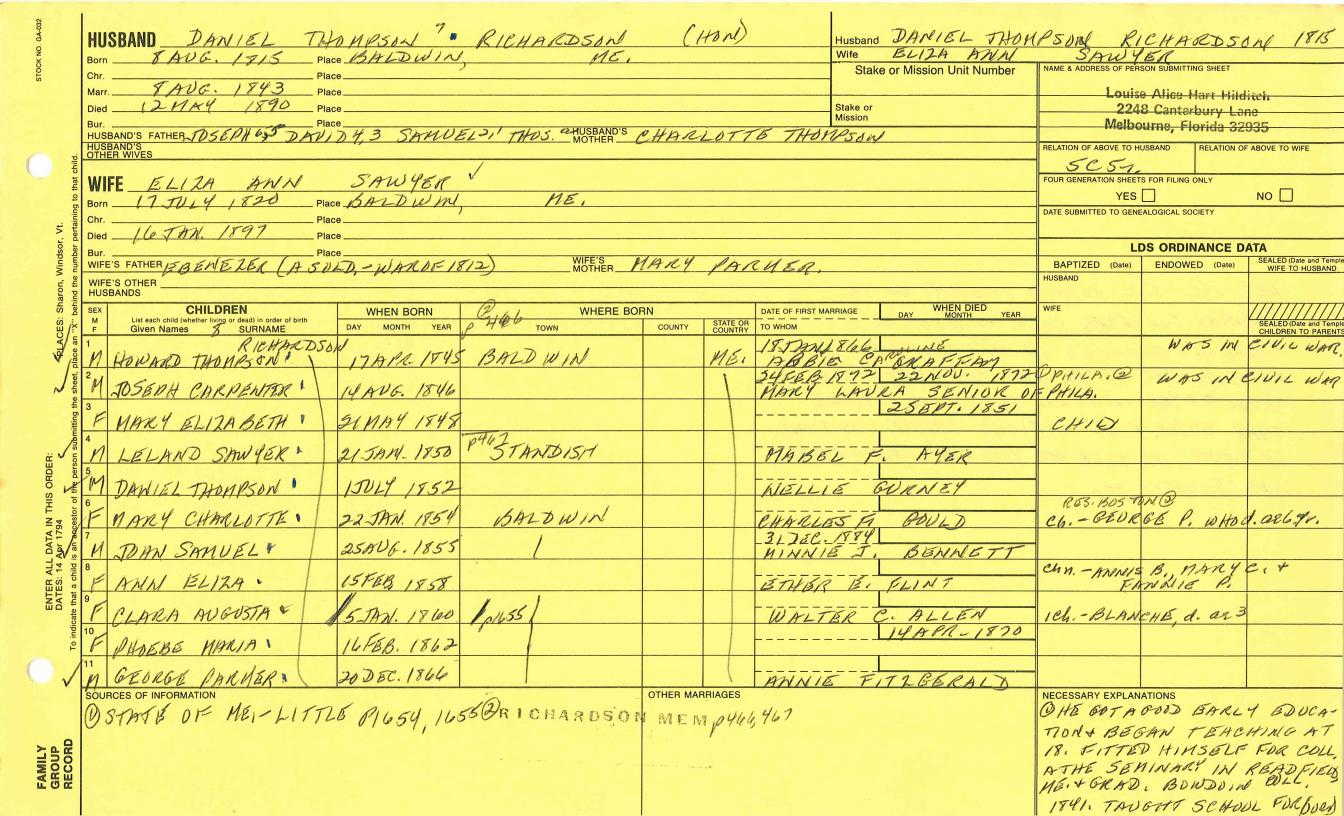 STOCK NO. GA-032
HUSBAND DANIEL THOMPSON 7 RICHARDSON (HON)
Born 8 AUG. 1815 Place BALDWIN, ME.
Chr. Place
Marr. 8 AUG. 1843 Place
Died 12 MAY 1890 Place
Bur. Place
HUSBAND'S FATHER JOSEPH DAVID 4,3 SAMUEL 2,1 THOS. HUSBAND'S MOTHER CHARLOTTE THOMPSON
HUSBAND'S OTHER WIVES
WIFE ELIZA ANN SAWYER ✓
Born 17 JULY 1820 Place BALDWIN, ME.
Chr. Place
Died 16 JAN. 1897 Place
Bur. Place
WIFE'S FATHER EBENEZER (A SOLD.-WAR OF 1812) WIFE'S MOTHER MARY PARKER.
WIFE'S OTHER HUSBANDS
Husband DANIEL THOMPSON RICHARDSON 1815
Wife ELIZA ANN SAWYER
Stake or Mission Unit Number
Stake or Mission
NAME & ADDRESS OF PERSON SUBMITTING SHEET
Louise Alice Hart Hilditch
2248 Cantarbury Lane
Melbourne, Florida 32935
RELATION OF ABOVE TO HUSBAND RELATION OF ABOVE TO WIFE
5C5r.
FOUR GENERATION SHEETS FOR FILING ONLY
YES NO
DATE SUBMITTED TO GENEALOGICAL SOCIETY
LDS ORDINANCE DATA
BAPTIZED (Date) ENDOWED (Date) SEALED (Date and Temple) WIFE TO HUSBAND
HUSBAND
WIFE
SEALED (Date and Temple) CHILDREN TO PARENTS
SEX M F
CHILDREN
List each child (whether living or dead) in order of birth
Given Names 8 SURNAME
WHEN BORN
DAY MONTH YEAR
② p 466
WHERE BORN
TOWN COUNTY STATE OR COUNTRY
DATE OF FIRST MARRIAGE
TO WHOM
WHEN DIED
DAY MONTH YEAR
RICHARDSON
1 M HOWARD THOMPSON 17 APR. 1845 BALDWIN ME. 18 JAN 1866 ABBIE GRAFFAM WAS IN CIVIL WAR.
2 M JOSEPH CARPENTER 14 AUG. 1846 24 FEB. 1872 22 NOV. 1872 PHILA. ② WAS IN CIVIL WAR
MARY LAURA SENIOR OF PHILA.
3 F MARY ELIZABETH 21 MAY 1848 2 SEPT. 1851 CHID
4 M LELAND SAWYER 21 JAN. 1850 p467 STANDISH MABEL F. AYER
5 M DANIEL THOMPSON 1 JULY 1852 NELLIE GURNEY
6 F MARY CHARLOTTE 22 JAN. 1854 BALDWIN CHARLES F. GOULD RES. BOSTON ②
Ch.-GEORGE P. who d. at 6 yr.
7 M JOHN SAMUEL 25 AUG. 1855 31 DEC. 1884 MINNIE J. BENNETT
8 F ANN ELIZA 15 FEB 1858 ETHER E. FLINT Chn.-ANNIS B, MARY C. + FANNIE P.
9 F CLARA AUGUSTA 5 JAN. 1860 p1655 WALTER C. ALLEN 1 ch.-BLANCHE, d. at 3
10 F PHOEBE MARIA 16 FEB. 1862 14 APR-1870
11 M GEORGE PARKER 20 DEC. 1866 ANNIE FITZGERALD
SOURCES OF INFORMATION
① STATE OF ME,-LITTLE p1654, 1655 ② RICHARDSON MEM p466,467
OTHER MARRIAGES
NECESSARY EXPLANATIONS
① HE GOT A GOOD EARLY EDUCA-
TION + BEGAN TEACHING AT
18. FITTED HIMSELF FOR COLL
AT THE SEMINARY IN READFIELD
ME. + GRAD. BOWDOIN COLL.
1841. TAUGHT SCHOOL FOR
ENTER ALL DATA IN THIS ORDER:
DATES: 14 Apr 1794
PLACES: Sharon, Windsor, Vt.
To indicate that a child is an ancestor of the person submitting the sheet, place an "X" behind the number pertaining to that child.
FAMILY GROUP RECORD